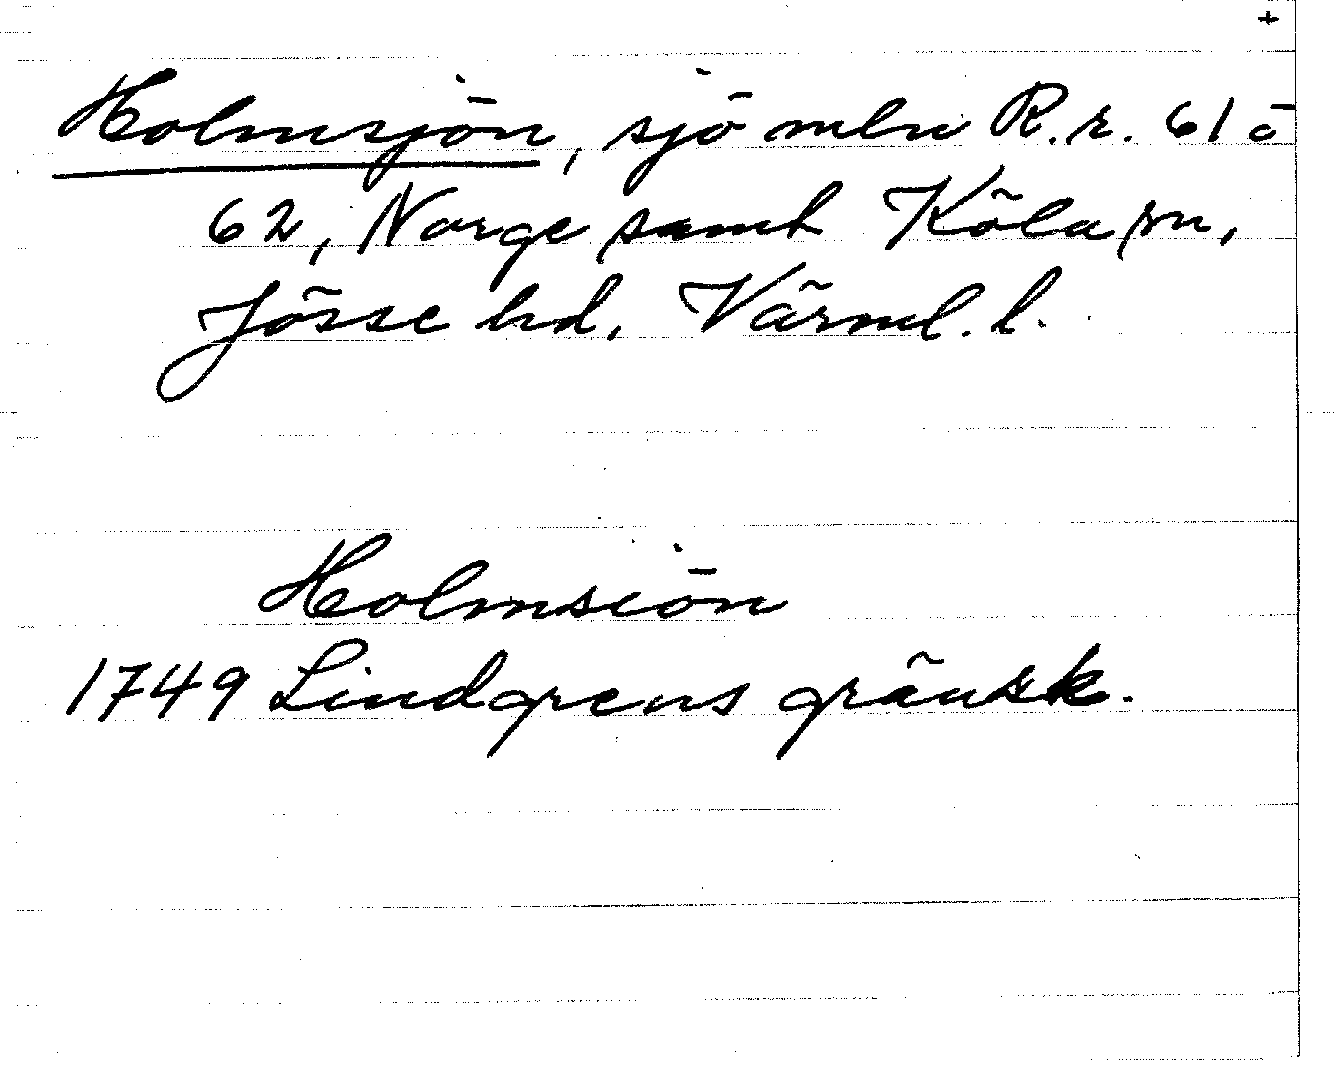 +
Holmsjön, sjö mln R.r. 61 o
62, Norge samt Köla sn,
Jösse hd, Värml. l.
Holmsiön
1749 Lindgrens gränsk.